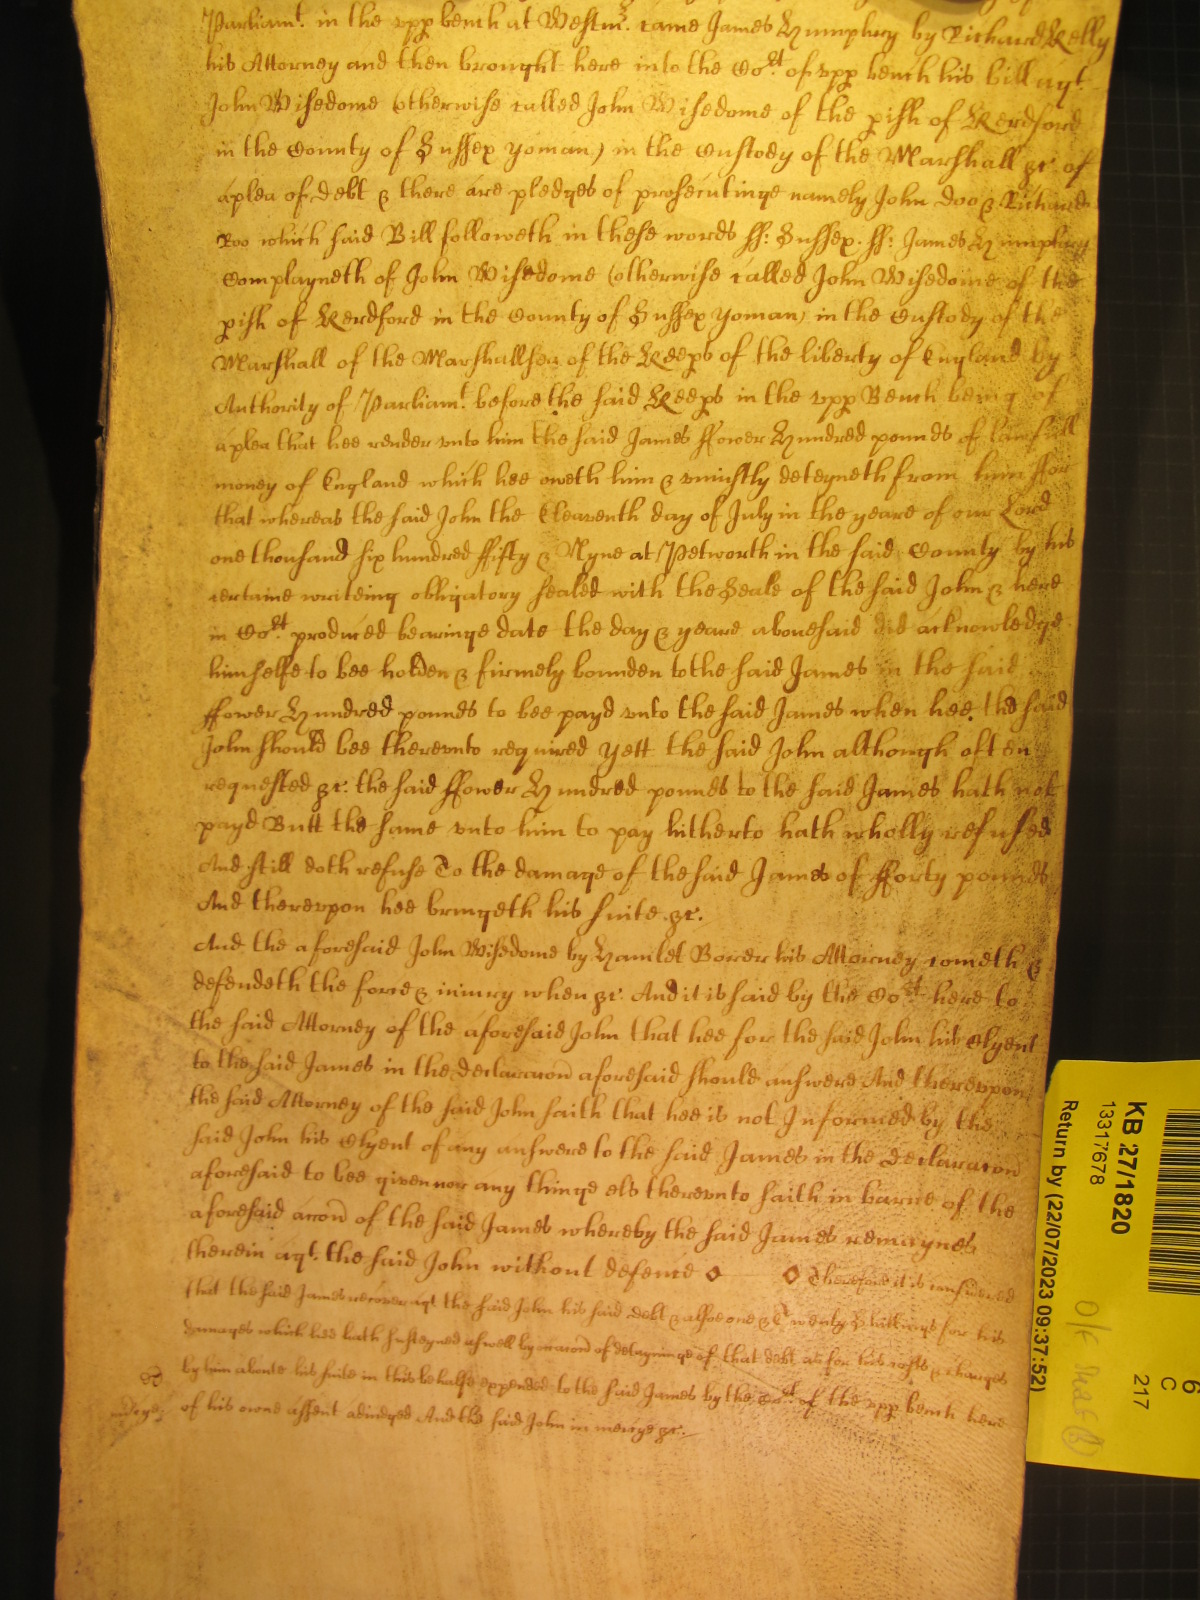 Parliamt. in the vpp bench at Westmr. came James Humphry by Richard Kelly
his Attorney and then brought here into the Cort. of vpp bench his bill agt.
John Wisedome (otherwise called John Wisedome of the pish of Kerdford
in the County of Sussex yoman) in the Custody of the Marshall &c. of
a plea of debt & there are pledges of prosecutinge namely John Doo & Richard
Roo which said Bill followeth in these words ss: Sussex. ss: James Humphry
Complayneth of John Wisedome (otherwise called John Wisedome of the
pish of Kerdford in the County of Sussex yoman) in the Custody of the
Marshall of the Marshallsea of the Keeps of the liberty of England by
Authority of Parliamt. before the said Keeps in the vpp Bench being of
a plea that hee render vnto him the said James ffower Hundred pounds of lawfull
money of England which hee oweth him & vniustly deteyneth from him ffor
that whereas the said John the Eleaventh day of July in the yeare of our Lord
one thousand six hundred ffifty & Nyne at Petworth in the said County by his
certaine writeing obligatory sealed with the Seale of the said John & here
in Cort. produced bearinge date the day & yeare abovesaid did acknowledge
himselfe to bee holden & firmely bounden to the said James in the said
ffower Hundred pounds to bee payd vnto the said James when hee the said
John should bee therevnto required yett the said John although often
requested &c. the said ffower Hundred pounds to the said James hath not
payd Butt the same vnto him to pay hitherto hath wholly refused
And still doth refuse To the damage of the said James of fforty pounds
And therevpon hee bringeth his suite &c.
And the aforesaid John Wisedome by Hamlet Bower his Attorney cometh &
defendeth the force & iniury when &c. And it is said by the Cort here to
the said Attorney of the aforesaid John that hee for the said John his Clyent
to the said James in the declaracon aforesaid should answere And therevpon
the said Attorney of the said John saith that hee is not Informed by the
said John his Clyent of any answere to the said James in the declaracon
aforesaid to bee given nor any thinge els therevnto saith in barre of the
aforesaid accon of the said James whereby the said James remaynes
therein agt. the said John without defence Therefore it is considered
that the said James recover agt the said John his said debt & alsoe one & Twenty Shillings for his
damages which hee hath susteyned aswell by occacon of detayninge of that debt as for his costs & charges
by him aboute his suite in this behalfe expended to the said James by the Cort of the vpp bench here
of his owne assent adiudged And the said John in mercye &c.
mercye
KB 27/1820
13317678
Return by (22/07/2023 09:37:52)
6
C
217